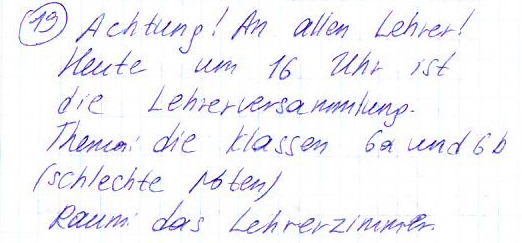 19 Achtung! An allen Lehrer!
Heute um 16 Uhr ist
die Lehrerversammlung.
Thema: die Klassen 6a und 6b
(schlechte Noten)
Raum: das Lehrerzimmer.